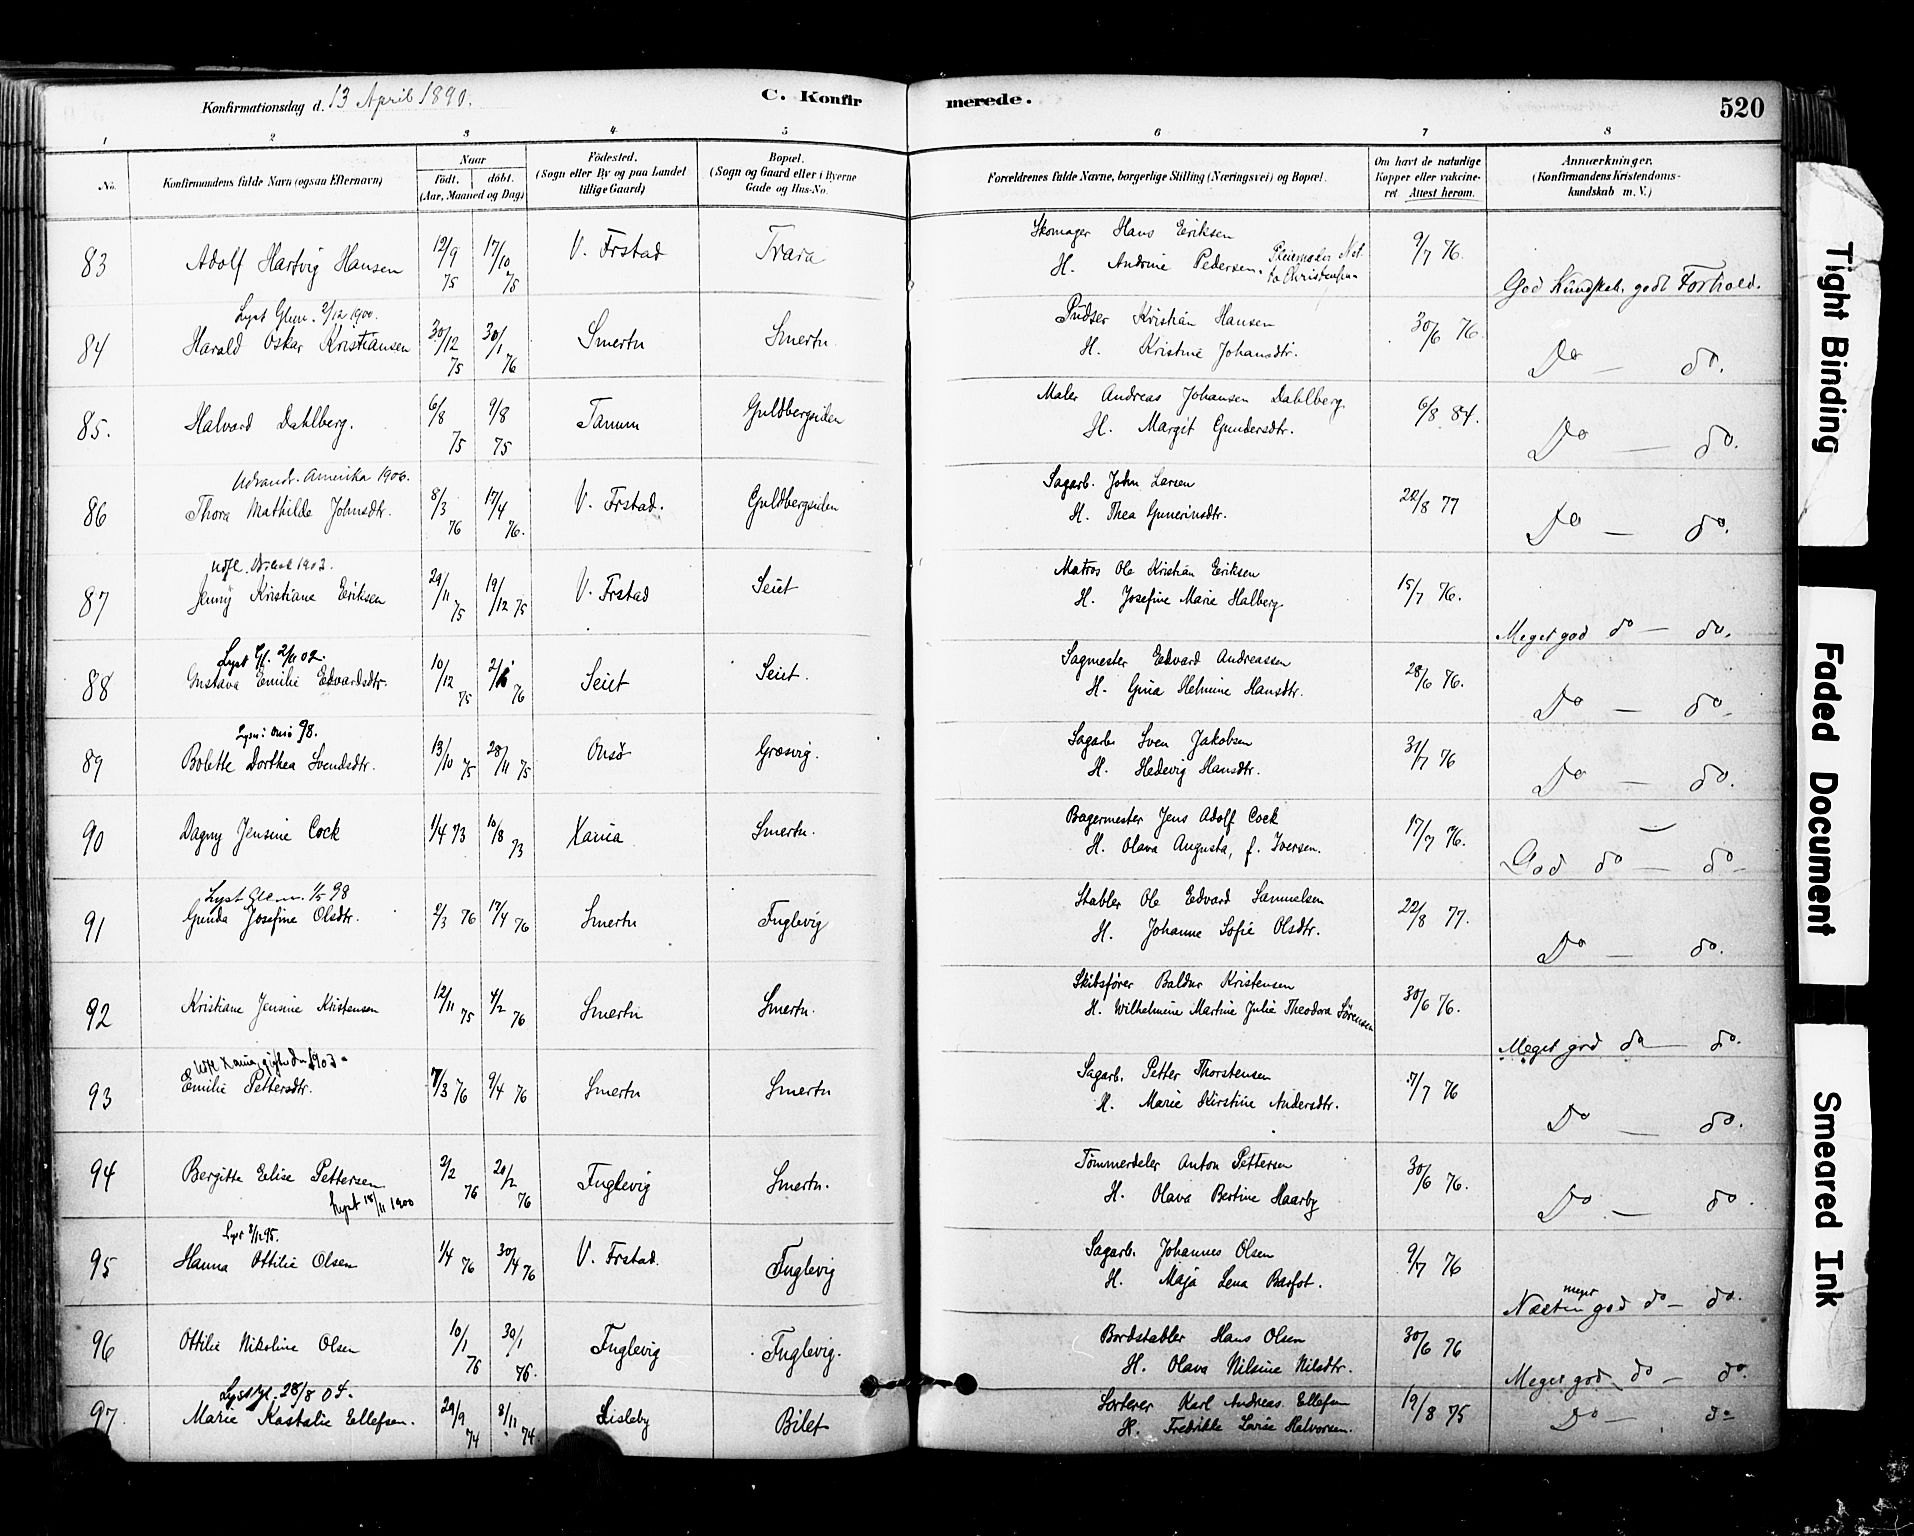 Konfirmationsdag d. 13 April 1890. C. Konfirmerede. 520
1 2 3 4 5 6 7 8
No. Konfirmandens fulde Navn (ogsaa Efternavn) Naar Födt. döbt. (Aar, Maaned og Dag) Födested. (Sogn eller By og paa Landet tillige Gaard) Bopæl. (Sogn og Gaard eller i Byerne Gade og Hus-No. Forældrenes fulde Navne, borgerlige Stilling (Næringsvei) og Bopæl. Om havt de naturlige Kopper eller vakcineret Attest herom. Anmærkninger. (Konfirmandens Kristendomskundskab m. V.)
83 Adolf Hartvig Hansen 12/9 75 17/10 75 V. Frstad Trara Skomager Hans Eriksen 9/7 76.
H. Andrine Pedersen. God Kundskab, godt Forhold.
Lyst Glem. 2/12 1900.
84 Harald Oskar Kristiansen 30/12 75 30/1 76 Smertu Smertu Pudser Kristian Hansen 30/6 76.
H. Kristine Johansdtr. Do — do.
85. Halvard Dahlberg. 6/8 75 9/8 75 Tanum Guldbergsiden Maler Andreas Johansen Dahlberg 6/8 84.
H. Margit Gundersdtr. Do — do.
Udvandr. Amerika 1906.
86 Thora Mathilde Johnsdtr. 8/3 76 17/4 76. V. Frstad. Guldbergsiden Sagarb. John Larsen 22/8 77
H. Thea Gunerinsdtr. Do — do.
87 Jenny Kristiane Eriksen 29/11 75 19/12 75 V. Frstad Seiet Matros Ole Kristian Eriksen 15/7 76.
H. Josefine Marie Halberg. Meget god do — do.
88 Gustava Emilie Edvardsdtr. 10/12 75 76 Seiet Seiet. Sagmester Edvard Andreassen 28/6 76.
H. Gina Helmine Hansdtr. Do — do.
Lysn: Onsö 98.
89 Bolette Dorthea Svendsdtr. 13/10 75 28/11 75 Onsö Græsvig. Sagarb. Sven Jakobsen 31/7 76
H. Hedevig Hansdtr. Do — do.
90 Dagny Jensine Cock 1/4 73 10/8 73 Xania Smertu. Bagermester Jens Adolf Cock 17/7 76.
H. Olava Augusta, f. Iversen. God do — do
Lyst Glem. 1/5 98
91 Gunda Josefine Olsdtr. 2/3 76 17/4 76 Smertu Fuglevig Stabler Ole Edvard Samuelsen 22/8 77.
H. Johanne Sofie Olsdtr. Do — do.
92 Kristiane Jensine Kristensen 12/11 75 4/2 76 Smertu Smertu. Skibsfører Baldur Kristensen 30/6 76.
H. Wilhelmine Martine Julie Theodora Sørensen Meget god do — do.
93 Emilie Pettersdtr. 7/3 76 9/4 76 Smertu Smertu Sagarb. Petter Thorstensen 7/7 76
H. Marie Kirstine Andersdtr. Do — do.
94 Bergitte Elise Pettersen 2/2 76 20/2 76 Fuglevig Smertu. Tømmerdeler Anton Pettersen 30/6 76.
Lyst 18/11 1900 H. Olava Bertine Haarby Do — do.
95 Hanna Ottilie Olsen 1/4 76 30/4 76 V. Frstad. Fuglevig Sagarb. Johannes Olsen 9/7 76
H. Maja Lena Barfot. Næsten meget god do — do.
96 Ottilie Nikoline Olsen 10/1 76 30/1 76. Fuglevig Fuglevig. Bordstabler Hans Olsen 30/6 76
H. Olava Nilsine Nilsdtr. Meget god do — do.
97. Marie Kastalie Ellefsen. 29/9 74 8/11 74. Lisleby Bilet Sorterer Karl Andreas Ellefsen 19/8 75
H. Fredrikke Lovise Halvorsen. Do — do
Tight Binding
Faded Document
Smeared Ink